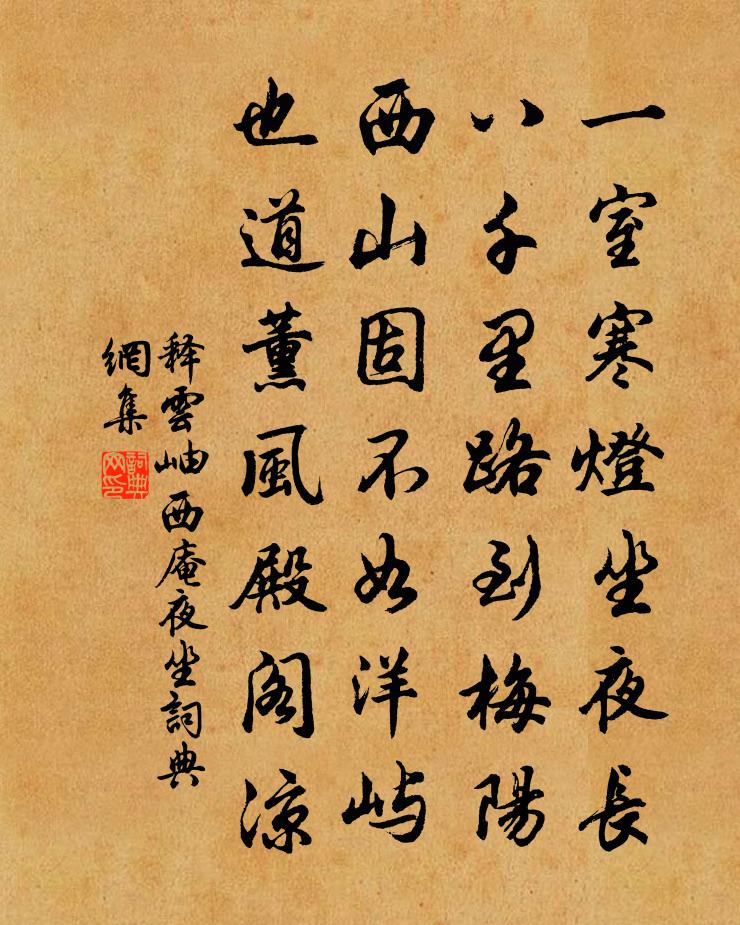 一室寒燈坐夜長
八千里路到梅陽
西山固不如洋嶼
也道薰風殿阁凉
释雲岫西庵夜坐詞典
網集
詞典
网印